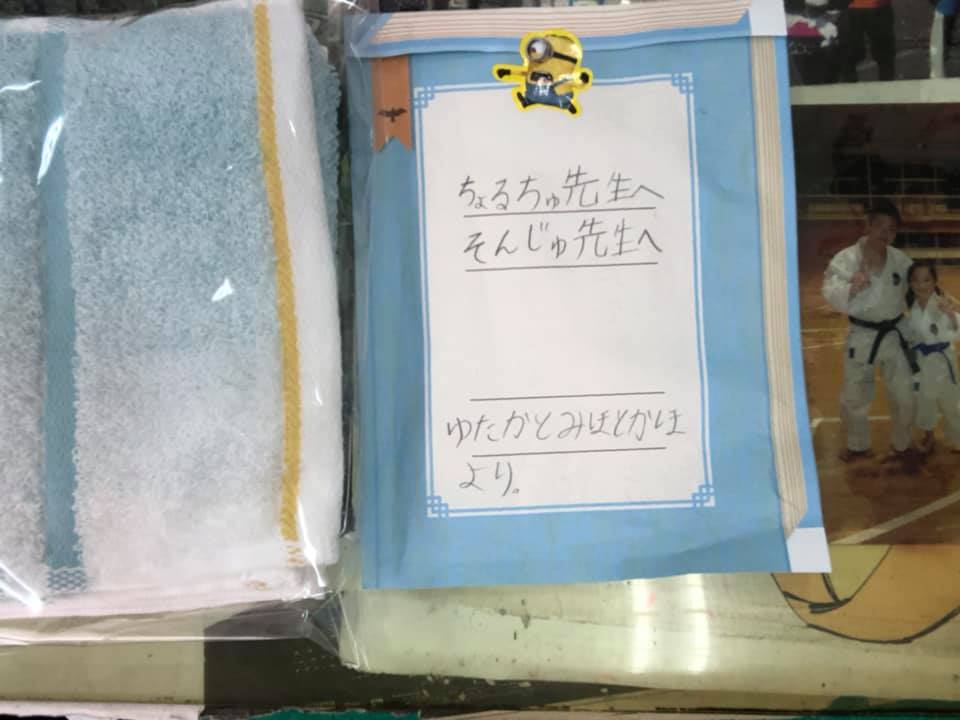 ちょるちゅ先生へ
そんじゅ先生へ
ゆたかとみほとかほ
より。